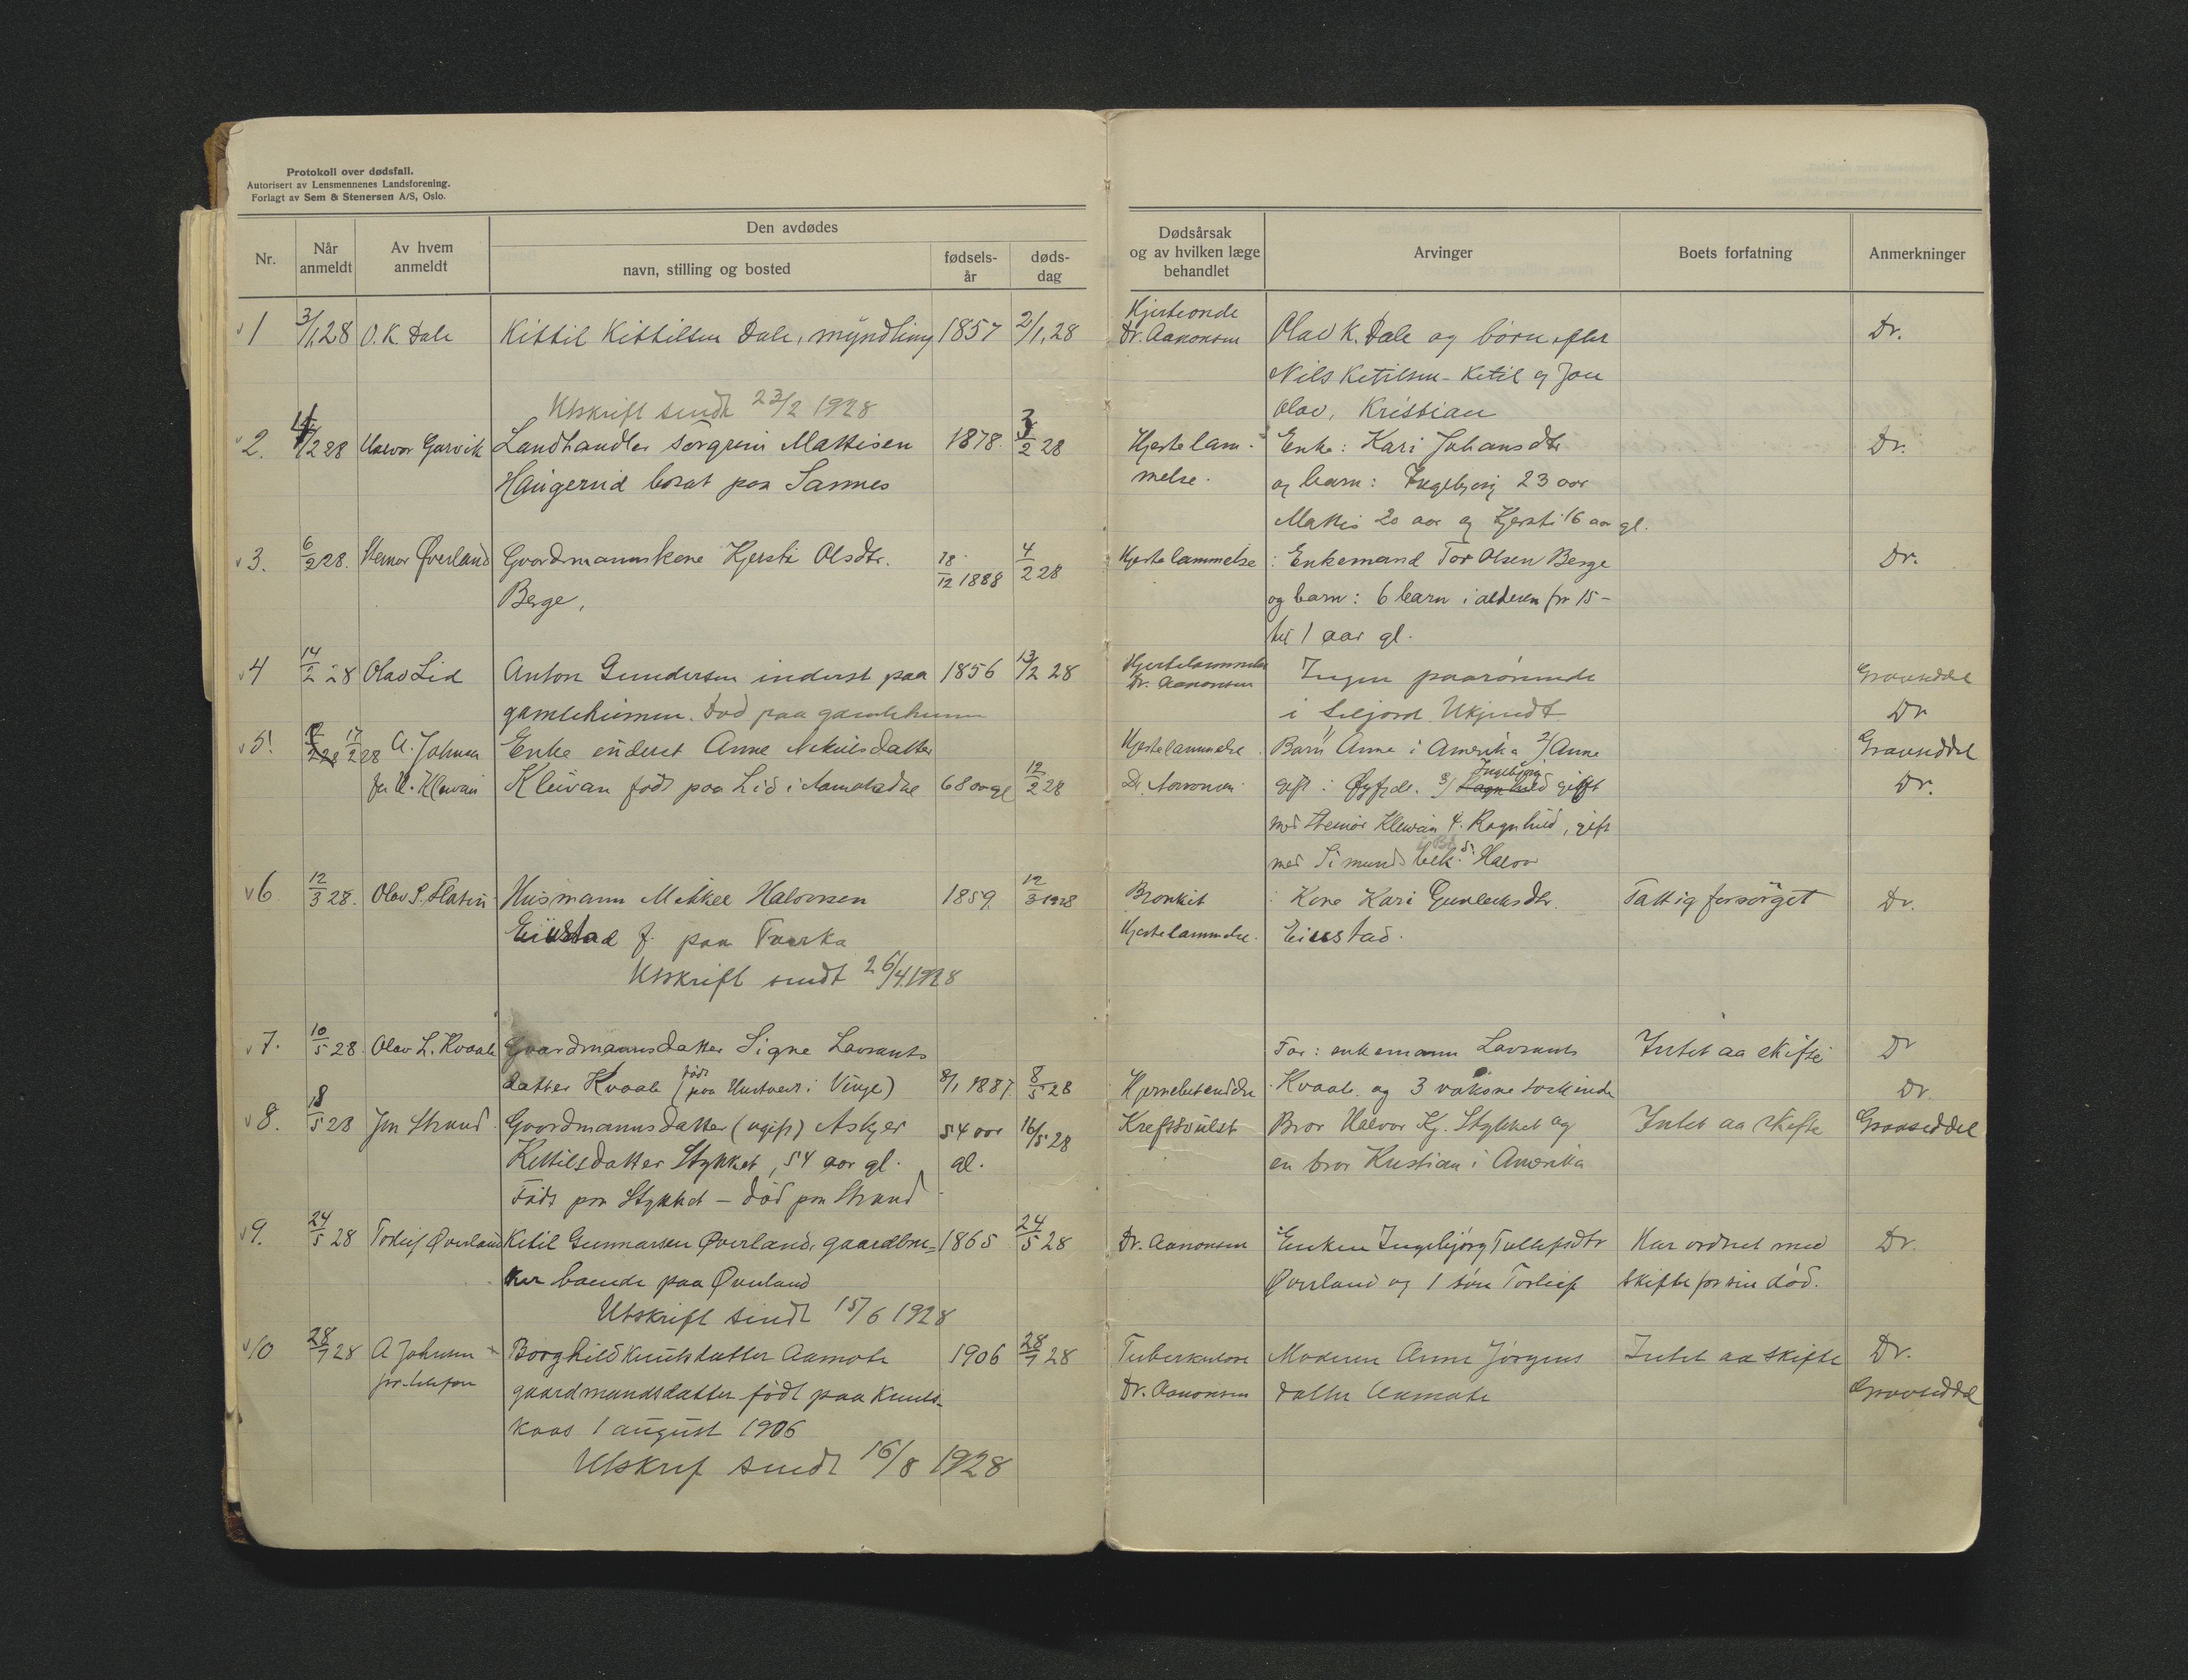 Protokoll over dødsfall.
Autorisert av Lensmennenes Landsforening.
Forlagt av Sem & Stenersen A/S, Oslo.
Nr.
Når anmeldt
Av hvem anmeldt
Den avdødes
navn, stilling og bosted
fødsels-år
døds-dag
Dødsårsak og av hvilken læge behandlet
Arvinger
Boets forfatning
Anmerkninger
1 3/1 28 O. K. Dale Kittil Kittilsen Dale, myndling 1857 2/1, 28 Hjerteonde Dr. Aanonsen Olav K. Dale og børn efter Dr.
Nils Ketilsen - Ketil og Jon
Olav, Kristian
Utskrift sendt 23/2 1928
2. 4/2 28 Halvor Garvik Landhandler Torgrim Mattisen 1878. 3/2 28 Hjertelam- Enke: Kari Johansdtr Dr.
Haugerud bosat paa Sannes melse. og barn: Ingebjørg 23 aar
Mattis 20 aar og Kjersti 16 aar gl.
3. 6/2 28. Steinar Øverland Gaardmannskone Kjersti Olsdtr. 18/12 1888 4/2 28 Hjertelammelse Enkemand Tor Olsen Berge Dr.
Berge, og barn: 6 barn i alderen fra 15 -
til 1 aar gl.
4 14/2 28 Olav Lid Anton Gundersen inderst paa 1856 13/2 28 Hjertelammelse Dr. Aanonsen Ingen paarørende Gravseddel
gamleheimen. Død paa gamleheimen i Seljord Ukjendt Dr
5. 17/2 28 A. Johnsen Enke inderst Anne Nikulsdatter Hjertelammelse Barn 1/ Anne i Amerika 2/ Anne Gravseddel
for H. Kleivan Kleivan født paa Lid i Aamotsdal 68 aar gl 12/2 28 Dr. Aanonsen gift i Øyfjeld. 3/ Ingebjørg gift Dr.
med Steinar Kleivan 4. Ragnhild, gift
med Simund 5. Halvor
6 12/3 28. Olav S. Flatin Husmann Mikkel Halvorsen 1859. 12/3 1928 Bronkit Kone Kari Gunleiksdtr. Fattig forsørget Dr.
Eiustad f. paa Hjertelammelse. Eiustad.
Utskrift sendt 26/4 1928
7. 10/5 28. Olav L. Kvaale Gaardmannsdatter Signe Lavrants Far: enkemann Lavrants Intet aa skifte Dr
datter Kvaale (født paa i Vinje) 9/1 1887. 8/5 28 Hjernebetændelse Kvaale og 3 voksne sødskende Dr.
8. 18/5 28 Jon Strand Gaardmannsdatter (ugift) Askjer 54 aar 16/5 28 Kreftsvulst Bror Halvor Kj. Stykket og Intet aa skifte Gravseddel
Kettilsdatter Stykket, 54 aar gl. gl. en bror Kristian i Amerika
Født paa Stykket - død paa Strand
9. 24/5 28 Torleif Øverland Ketil Gunnarsen Øverland, gaardbru- 1865 24/5 28 Dr. Aanonsen Enken Ingebjørg Tollefsdtr Har ordnet med Dr.
ker boende paa Øverland Øverland og 1 søn Torleif skifte før sin død.
Utskrift sendt 15/6 1928
10 28/7 28 A Johnsen Borghild Knutsdatter Aamote 1906 28/7 28 Tuberkulose Moderen Anne Jørgens Intet aa skifte Dr.
pr. telefon gaardmandsdatter født paa Knuts- Dr. Aanonsen datter Aamote Gravseddel
kaas 1 august 1906
Utskrif sendt 16/8 1928